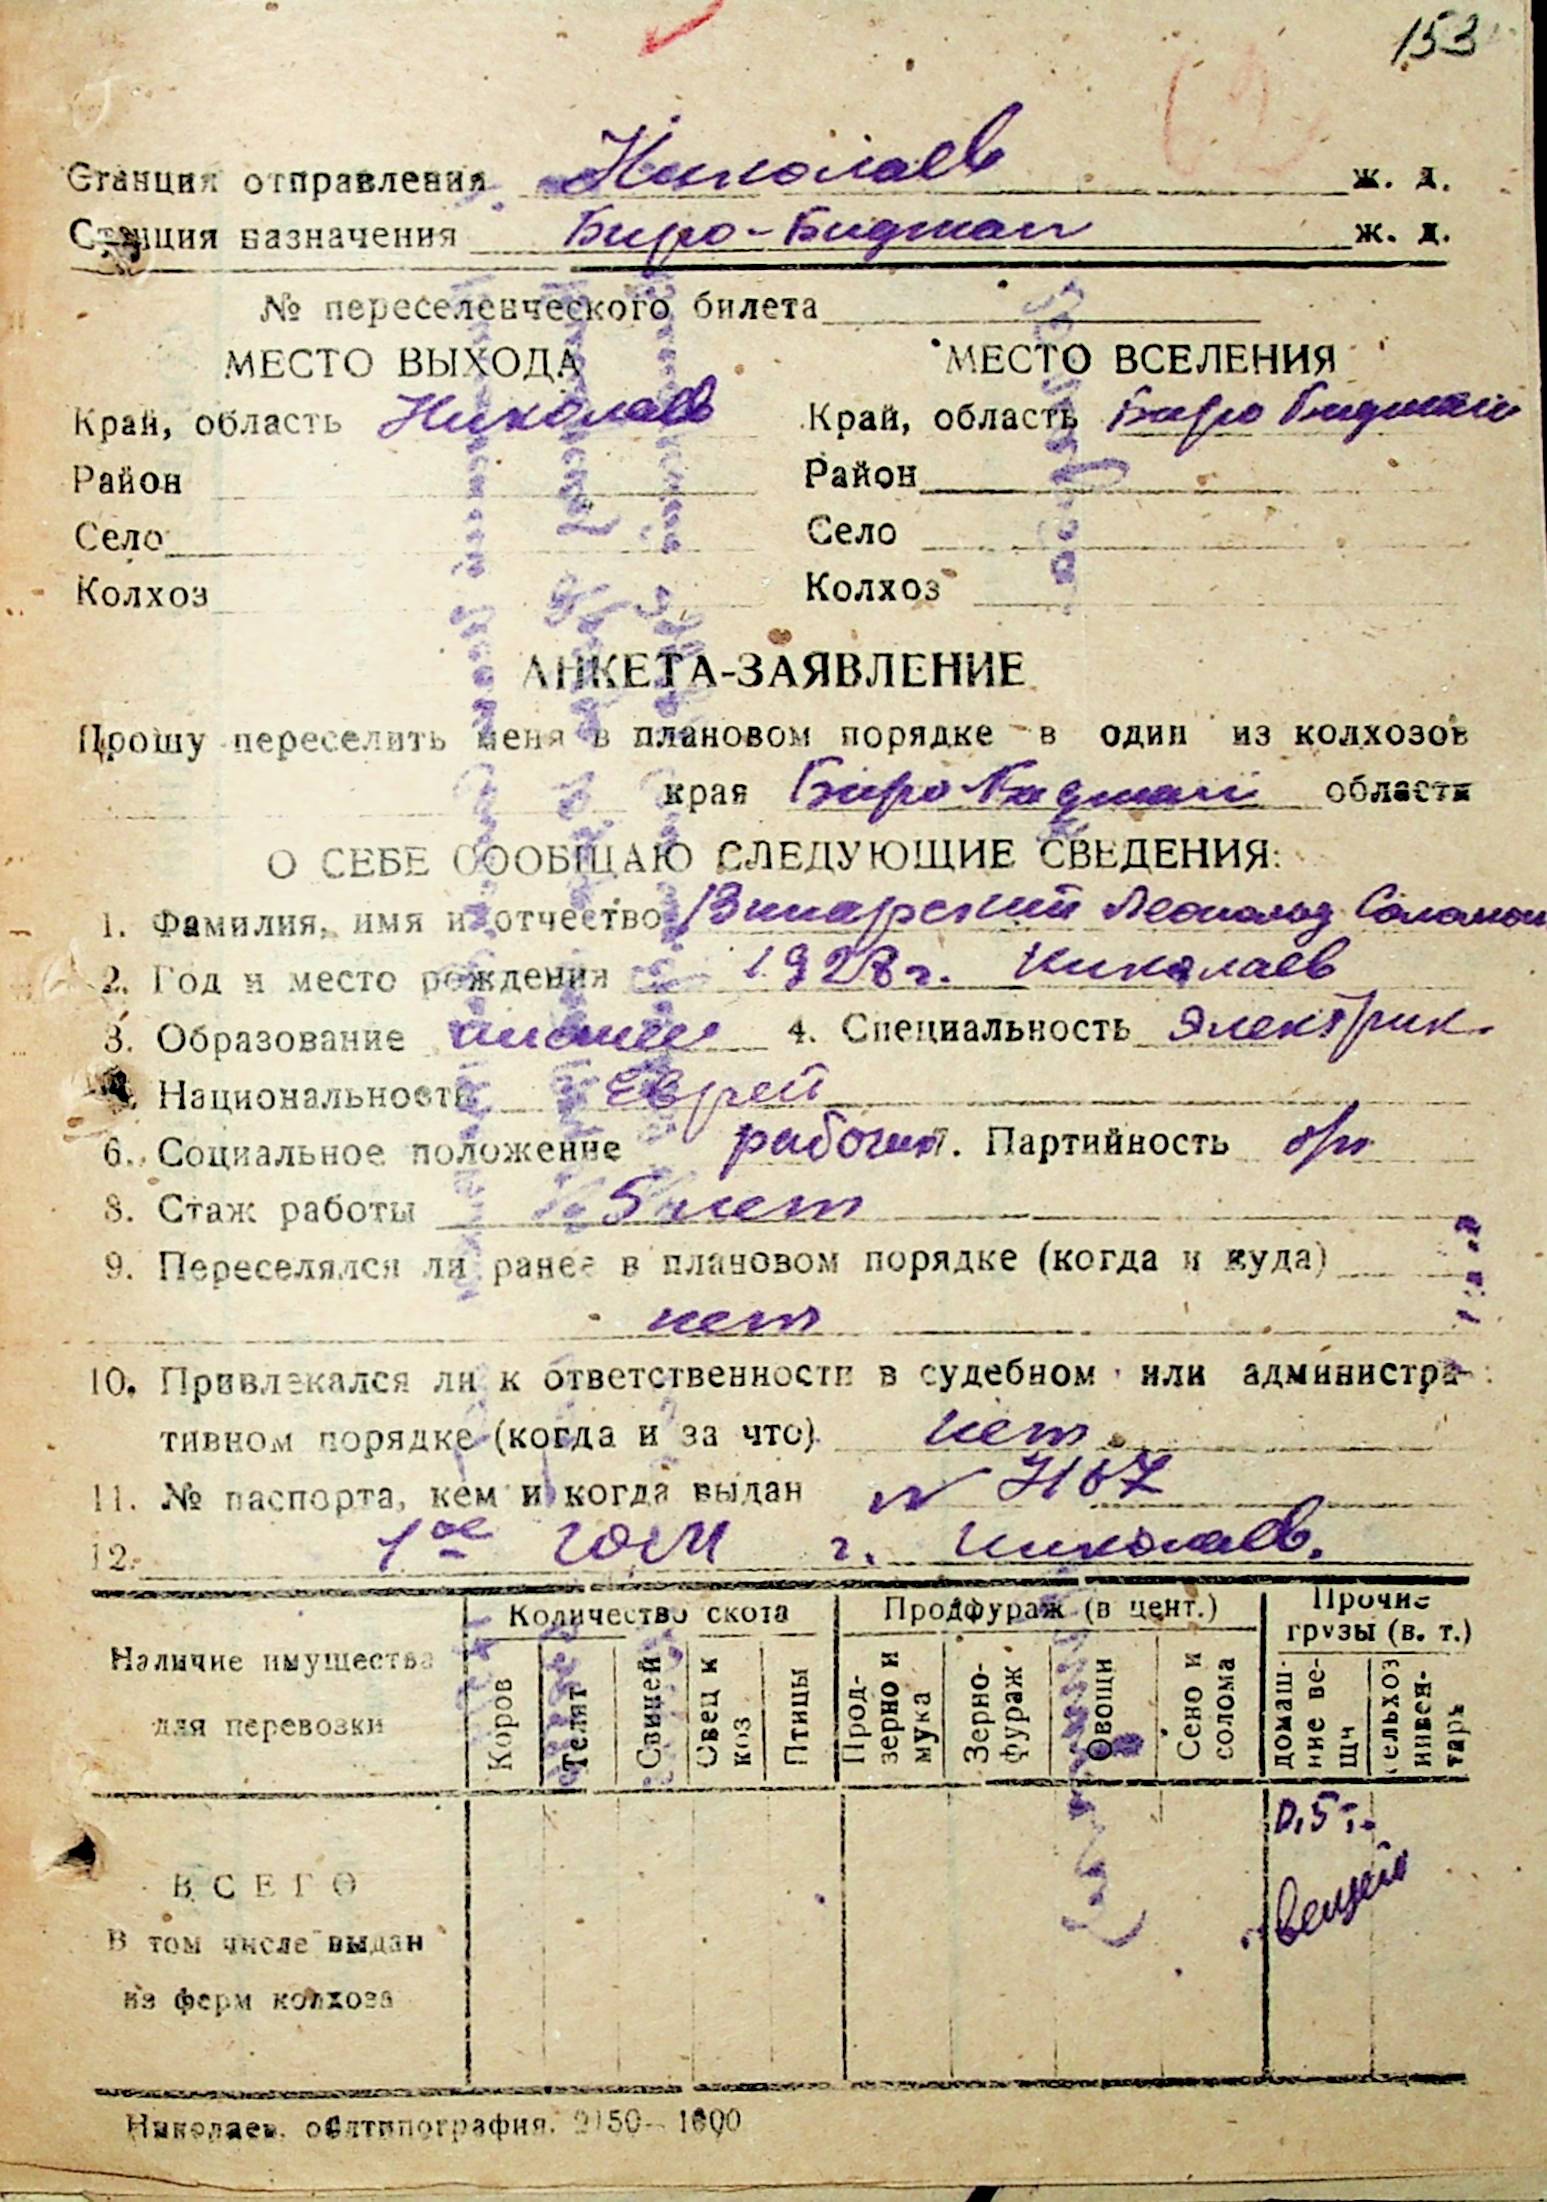 153
Станция отправления Николаев ж. д.
Станция назначения Биро-Биджан ж. д.
№ переселенческого билета
МЕСТО ВЫХОДА МЕСТО ВСЕЛЕНИЯ
Край, область Николаев Край, область Биро Биджан
Район Район
Село Село
Колхоз Колхоз
АНКЕТА-ЗАЯВЛЕНИЕ
Прошу переселить меня в плановом порядке в один из колхозов
края Биро-Биджан области
О СЕБЕ СООБЩАЮ СЛЕДУЮЩИЕ СВЕДЕНИЯ:
1. Фамилия, имя и отчество Винарский Леопольд Соломон
2. Год и место рождения 1928 г. Николаев
3. Образование 4. Специальность Электрик.
Национальность Еврей
6. Социальное положение рабочий 7. Партийность б/п
8. Стаж работы 5 лет
9. Переселялся ли ранее в плановом порядке (когда и куда)
нет
10. Привлекался ли к ответственности в судебном или администра-
тивном порядке (когда и за что) нет
11. № паспорта, кем и когда выдан
12. 1ое ГОМ г. Николаев.
Наличие имущества для перевозки
Количество скота Продфураж (в цент.) Прочие грузы (в. т.)
Коров Телят Свиней Овец и коз Птицы Прод-зерно и мука Зерно-фураж Овощи Сено и солома домаш-ние ве-щи сельхоз инвен-тарь
0,5 т.
вещей
ВСЕГО
В том числе выдан
из ферм колхоза
Николаев. облтипография. 2150— 1000